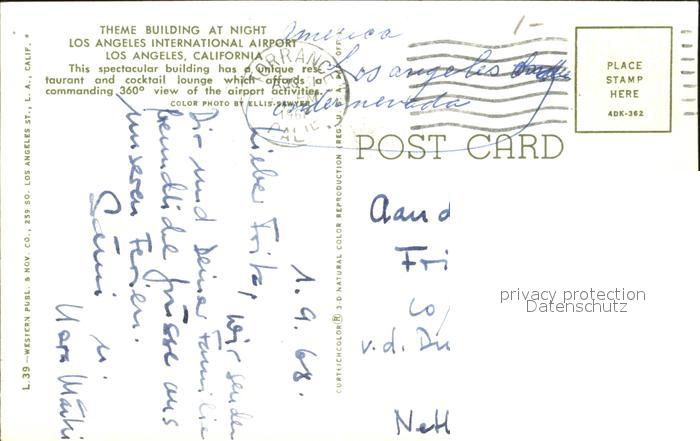 THEME BUILDING AT NIGHT
LOS ANGELES INTERNATIONAL AIRPORT
LOS ANGELES, CALIFORNIA
This spectacular building has a unique res-
taurant and cocktail lounge which affords a
commanding 360° view of the airport activities.
COLOR PHOTO BY ELLIS-SAWYER
America
Los angeles
nevada
1-
TORRANCE
CALIF
PLACE
STAMP
HERE
ADK-362
POST CARD
1.9.68.
Lieber Fritz, wir senden
Dir und Deiner Familie
freundliche Grüsse aus
unseren Ferien.
u.
L.39—WESTERN PUBL. & NOV. CO., 259 SO. LOS ANGELES ST., L. A., CALIF.
CURTEICHCOLOR® 3-D NATURAL COLOR REPRODUCTION
Aan d
Fri
Co
v.d. Du
Neth
privacy protection
Datenschutz